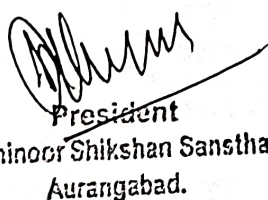 President
hinoor Shikshan Sanstha
Aurangabad.